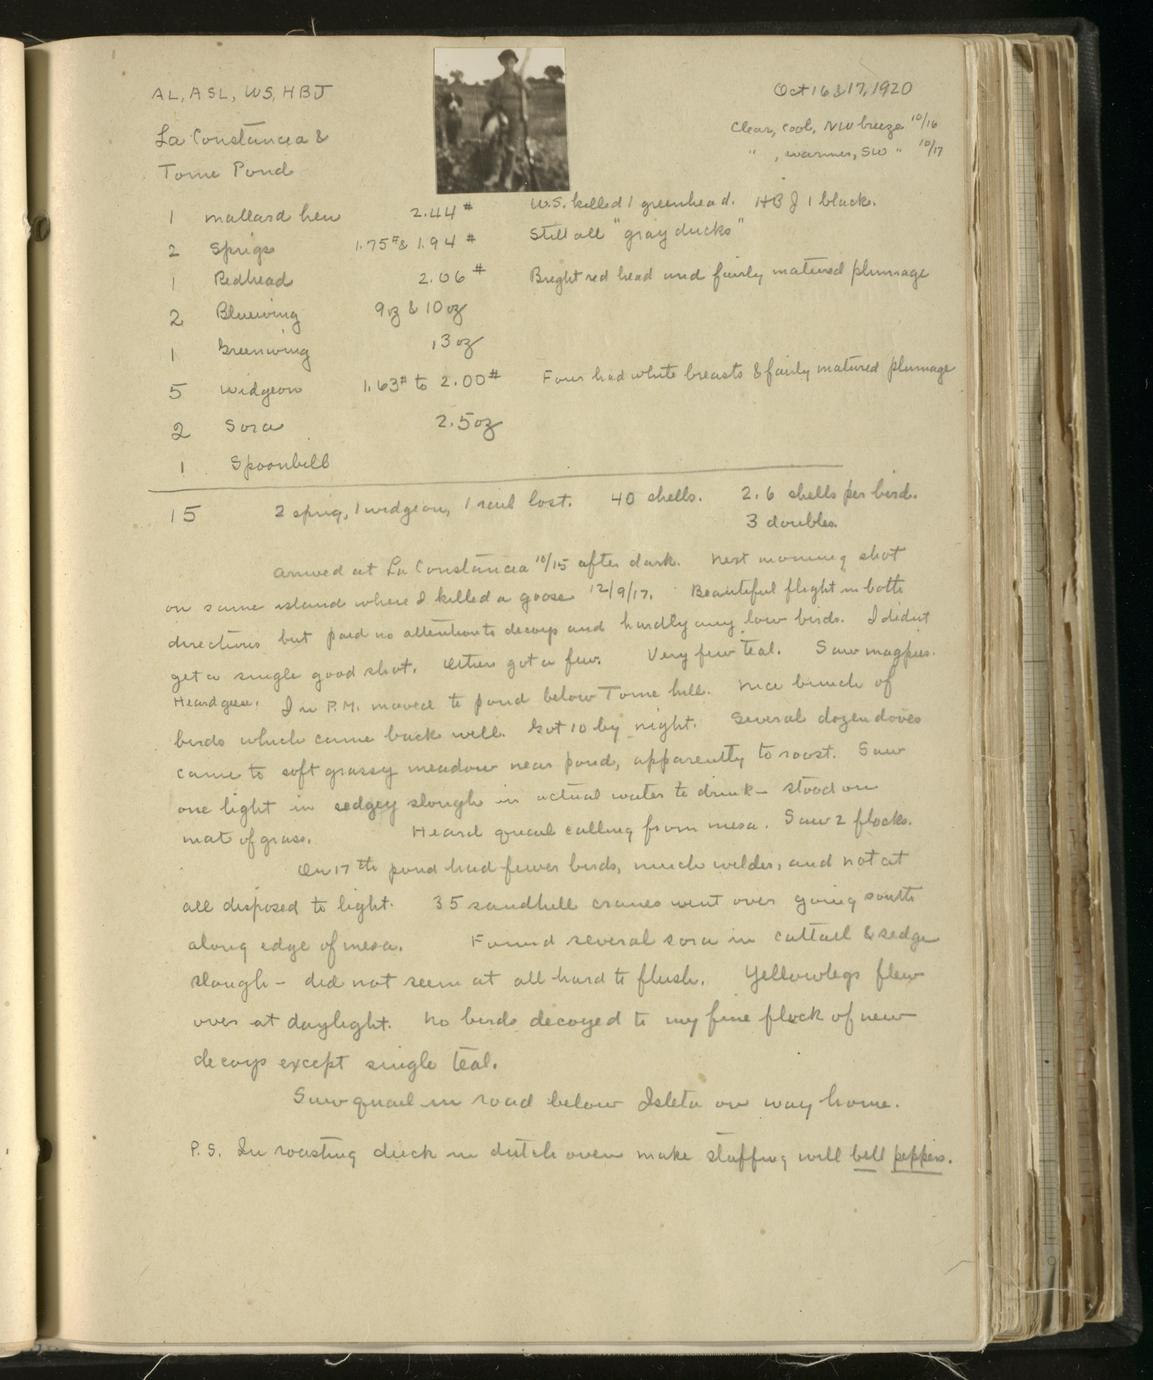 AL, ASL, WS, HBJ
Oct 16 & 17, 1920
Clear, cool, NW breeze 10/16
" , warmer, SW " 10/17
La Constancia &
Tome Pond
1 mallard hen 2.44 # W.S. killed 1 greenhead. HBJ 1 black.
2 Sprigs 1.75# & 1.94 # Still all "gray ducks"
1 Redhead 2.06 # Bright red head and fairly matured plumage
2 Bluewing 9oz & 10 oz
1 Greenwing 13 oz
5 widgeon 1.63# to 2.00# Four had white breasts & fairly matured plumage
2 Sora 2.5oz
1 Spoonbill
15 2 sprig, 1 widgeon, 1 rail lost. 40 shells. 2.6 shells per bird.
3 doubles.
Arrived at La Constancia 10/15 after dark. Next morning shot
on same island where I killed a goose 12/9/17. Beautiful flight in both
directions but paid no attention to decoys and hardly any low birds. I didn't
get a single good shot. Others got a few. Very few teal. Saw magpies.
Heard geese. In P.M. moved to pond below Tome hill. Nice bunch of
birds which came back well. Got 10 by night. Several dozen doves
came to soft grassy meadow near pond, apparently to roost. Saw
one light in sedgey slough in actual water to drink - stood on
mat of grass. Heard quail calling from mesa. Saw 2 flocks.
On 17th pond had fewer birds, much wilder, and not at
all disposed to light. 35 sandhill cranes went over going south
along edge of mesa. Found several sora in cattail & sedge
slough - did not seem at all hard to flush. Yellowlegs flew
over at daylight. No birds decoyed to my fine flock of new
decoys except single teal.
Saw quail in road below Isleta on way home.
P.S. In roasting duck in dutch oven make stuffing will bell peppers.